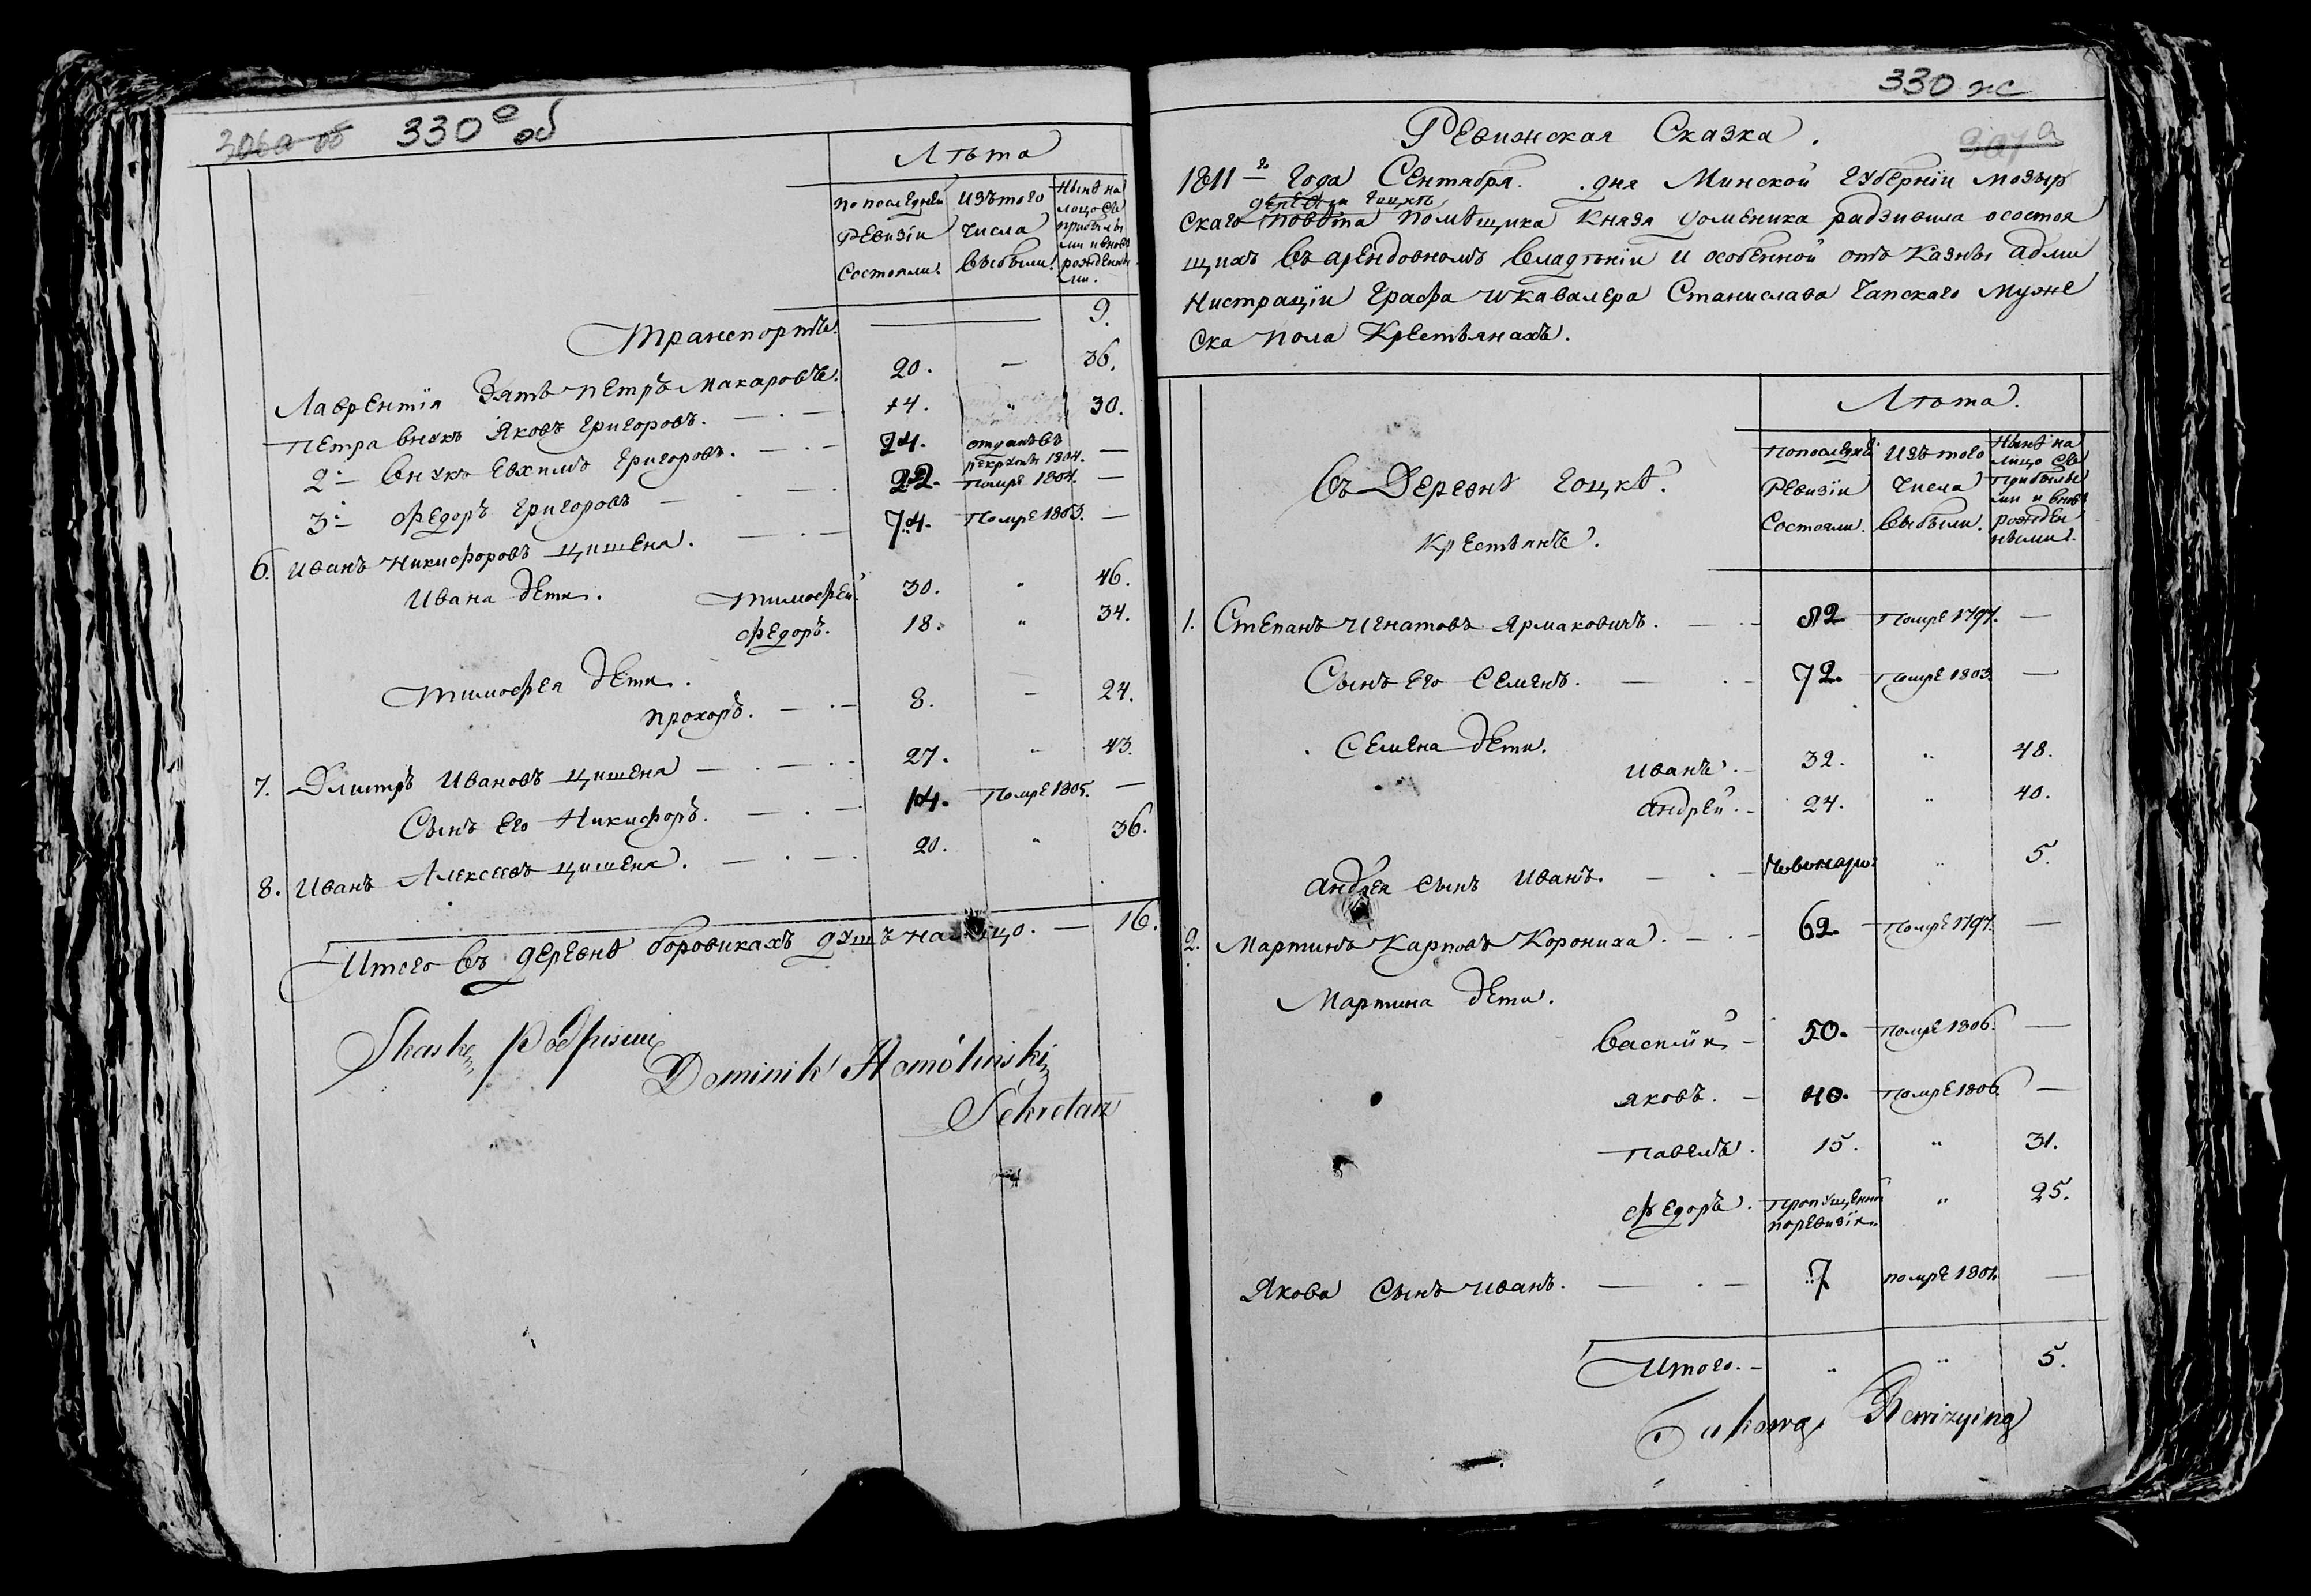 306а об 330е об
Лѣта
По последней Ревизіи Состояли. Изъ того Числа Выбыли. Нынѣ на лицо со прибылыми и вновь рожденными.
Транспортъ. — 9.
Лаврентія Зять Петръ Макаровъ. 20. — 36.
Петра внукъ Яковъ Григоровъ. 14. " 30.
2й внукъ Евхимъ Григоровъ. 24. отданъ въ рекруты 1804. —
3й Федоръ Григоровъ 22. Помре 1804. —
6. Иванъ Никифоровъ Цишена. 74. Помре 1803. —
Ивана дети. Тимофей. 30. " 46.
Федоръ. 18. " 34.
Тимофея дети.
Прохоръ. 8. — 24.
7. Дмитръ Ивановъ Цишена 27. " 43.
Сынъ его Никифоръ. 14. Помре 1805. —
8. Иванъ Алексеевъ Цишена. 20. " 36.
Итого въ деревнѣ боровикахъ душъ на лицо. — 16.
Skaskę podpisuię
Dominik
Sekretarz
330 ж
Ревижская Сказка.
307 а
1811го Года Сентября. . дня Минской Губерніи Мозыр
деревня Гоцкъ
скаго повѣта помѣщика Князя Доменика радзивила о состоя
щихъ въ арендовномъ владѣніи и особенной отъ Казны адми
нистраціи Графа и Кавалера Станислава Чапскаго мужес
ска пола Крестьянахъ.
Лѣта.
Въ Деревнѣ Гоцкѣ.
Крестьянъ.
По последней Ревизіи Состояли. Изъ того Числа Выбыли. Нынѣ на лицо со Прибылыми и вновь рожденными.
1. Степанъ Игнатовъ Ярмаковичъ. 82 Помре 1797. —
Сынъ его Семенъ. — 72. Помре 1803. —
Семена дети.
Иванъ. 32. " 48.
Андрей. 24. " 40.
Андрея сынъ Иванъ. — Новонаро: " 5.
2. Мартинъ Карповъ Корониха. 62. Помре 1797. —
Мартина дети.
Василій 50. Помре 1806. —
Яковъ. 40. Помре 1806. —
Павелъ. 15. " 31.
Федоръ. Пропущенный по ревизіи. " 25.
Якова Сынъ Иванъ. — 7 помре 1801. —
Итого. — " " 5.
Rewizyiną